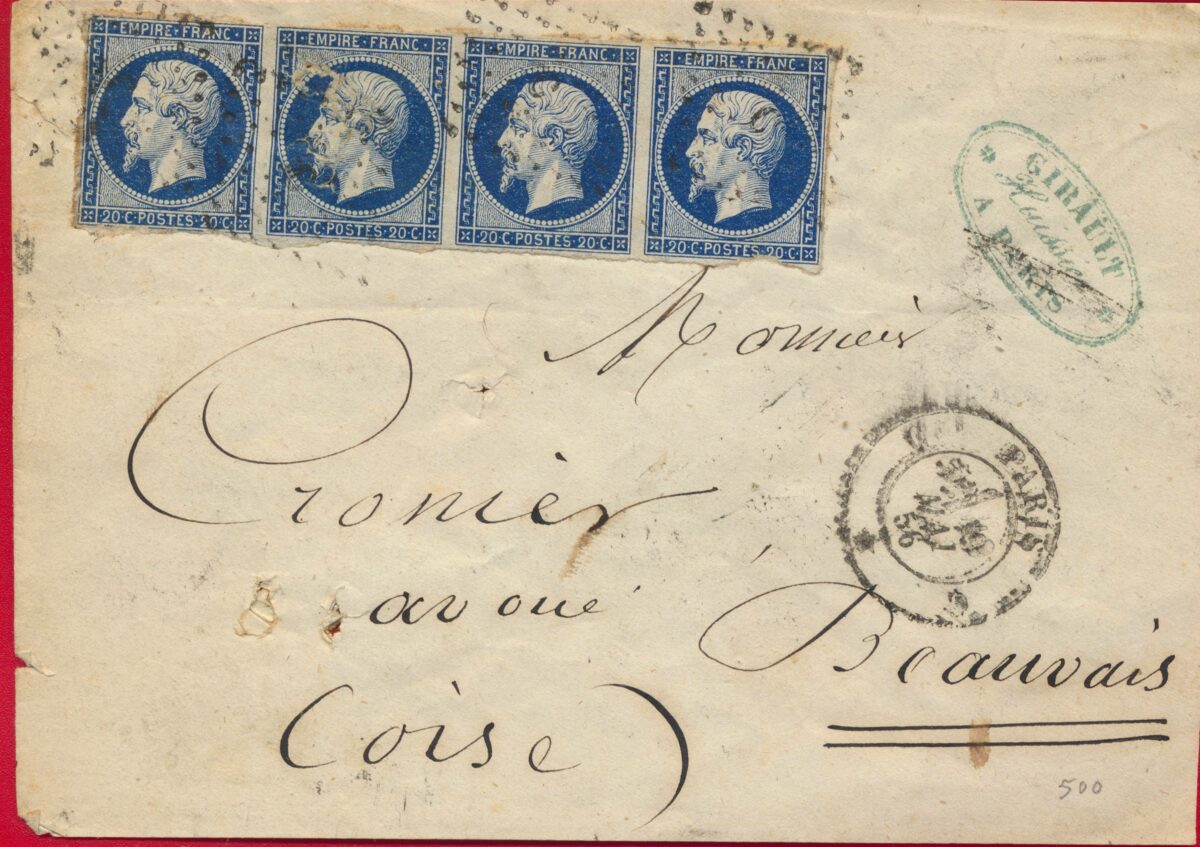 EMPIRE·FRANC·
20·C·POSTES·20·C·
EMPIRE·FRANC·
20·C·POSTES·20·C·
EMPIRE·FRANC·
20·C·POSTES·20·C·
EMPIRE·FRANC·
20·C·POSTES·20·C·
GIRAULT
Huissier
A PARIS
Monsieur
Cronier
avoué
Beauvais
(oise)
PARIS
500